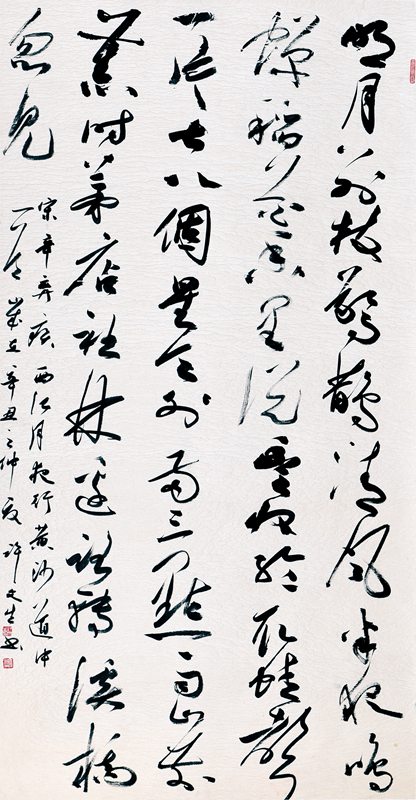 明月别枝驚鵲清風半夜鳴
蟬稻花香里说豐年聽取蛙聲
一片七八個星天外两三點雨山前
舊时茅店社林邊路轉溪橋
忽見
宋辛弃疾西江月夜行黄沙道中
歲在辛丑之仲夏許文生书